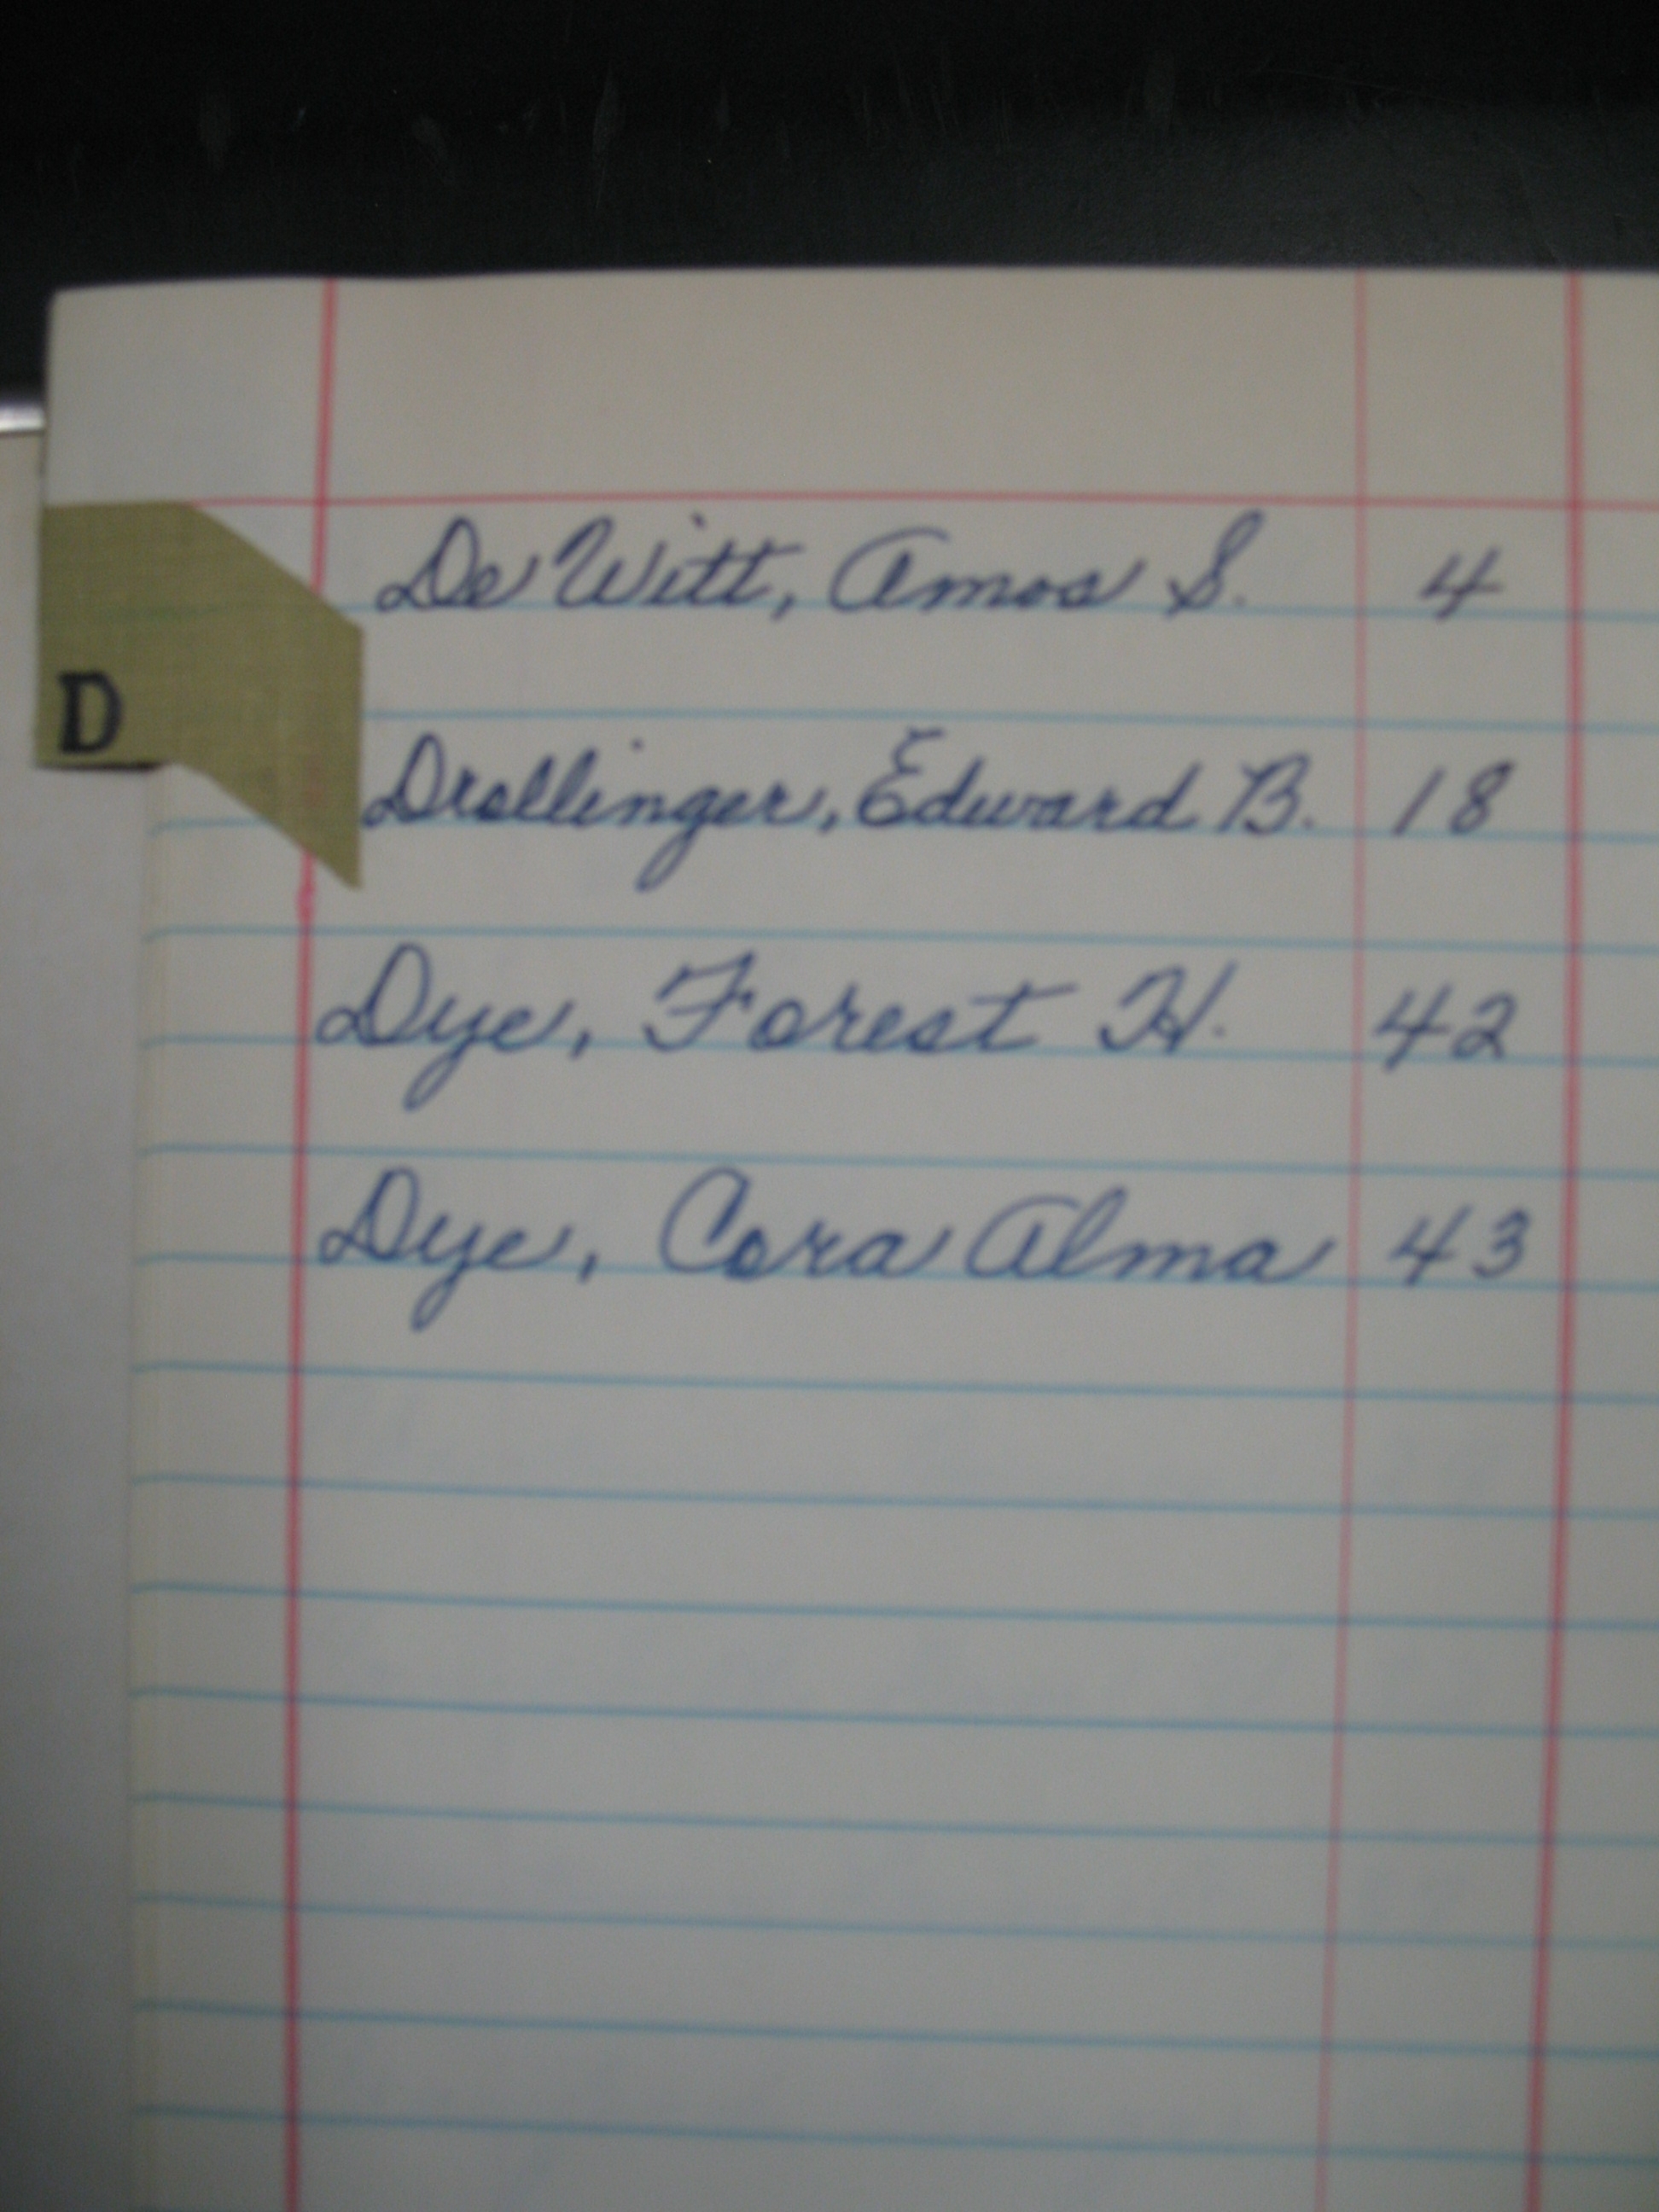 De Witt, Amos S. 4
D
Drollinger, Edward B. 18
Dye, Forest H. 42
Dye, Cora Alma 43